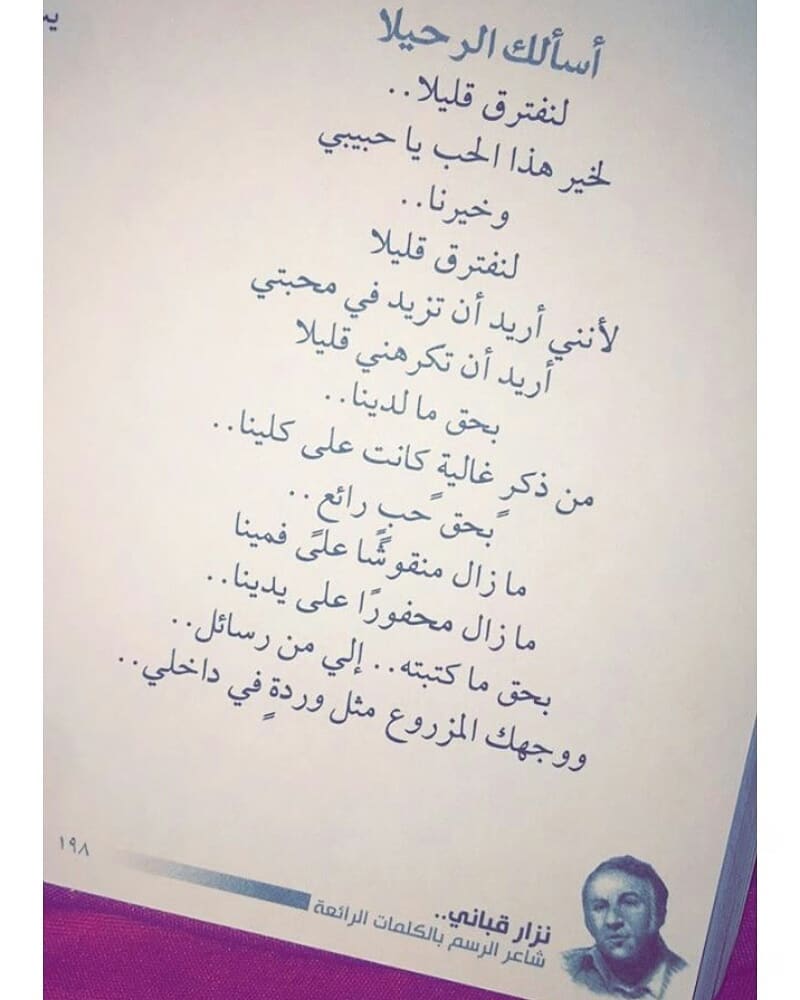 أسألك الرحيلا
لنفترق قليلا..
لخير هذا الحب يا حبيبي
وخيرنا..
لنفترق قليلا
لأنني أريد أن تزيد في محبتي
أريد أن تكرهني قليلا
بحق ما لدينا..
من ذكرٍ غاليةٍ كانت على كلينا..
بحق حبٍ رائعٍ..
ما زال منقوشًا على فمينا
ما زال محفورًا على يدينا..
بحق ما كتبته.. إلي من رسائل..
ووجهك المزروع مثل وردةٍ في داخلي..
١٩٨
نزار قباني..
شاعر الرسم بالكلمات الرائعة